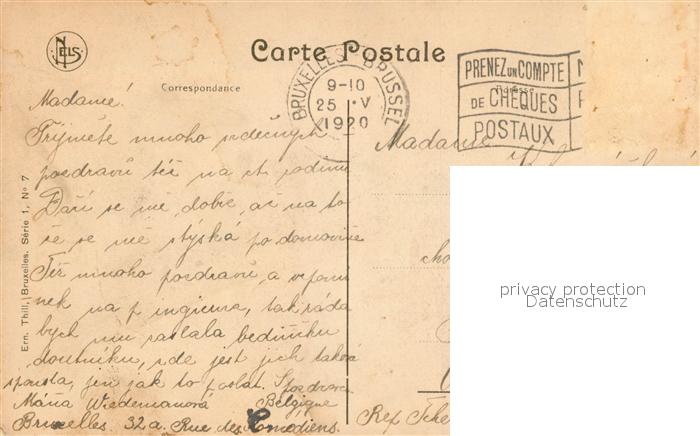 NELS
Carte Postale
Correspondance
Adresse
BRUXELLES BRUSSEL
9-10
25 V
1920
PRENEZ UN COMPTE
DE CHÈQUES
POSTAUX
Madame!
Přijměte mnoho srdečných
pozdravů též na ct. rodinu
Daří se mě dobře, ač na to
že se mě stýská po domovině
Též mnoho pozdravů a vzpomí
nek na p. ingieura, tak ráda
bych mu zaslala bedýnku
doutníku, zde jest jich taková
spousta, jen jak to poslat. S pozdravem
Máňa Wiedemanová
Belgique
Bruxelles 32a. Rue des Comediens.
Madame
Rep Tche
Ern. Thill, Bruxelles, Série 1, No 7
privacy protection
Datenschutz